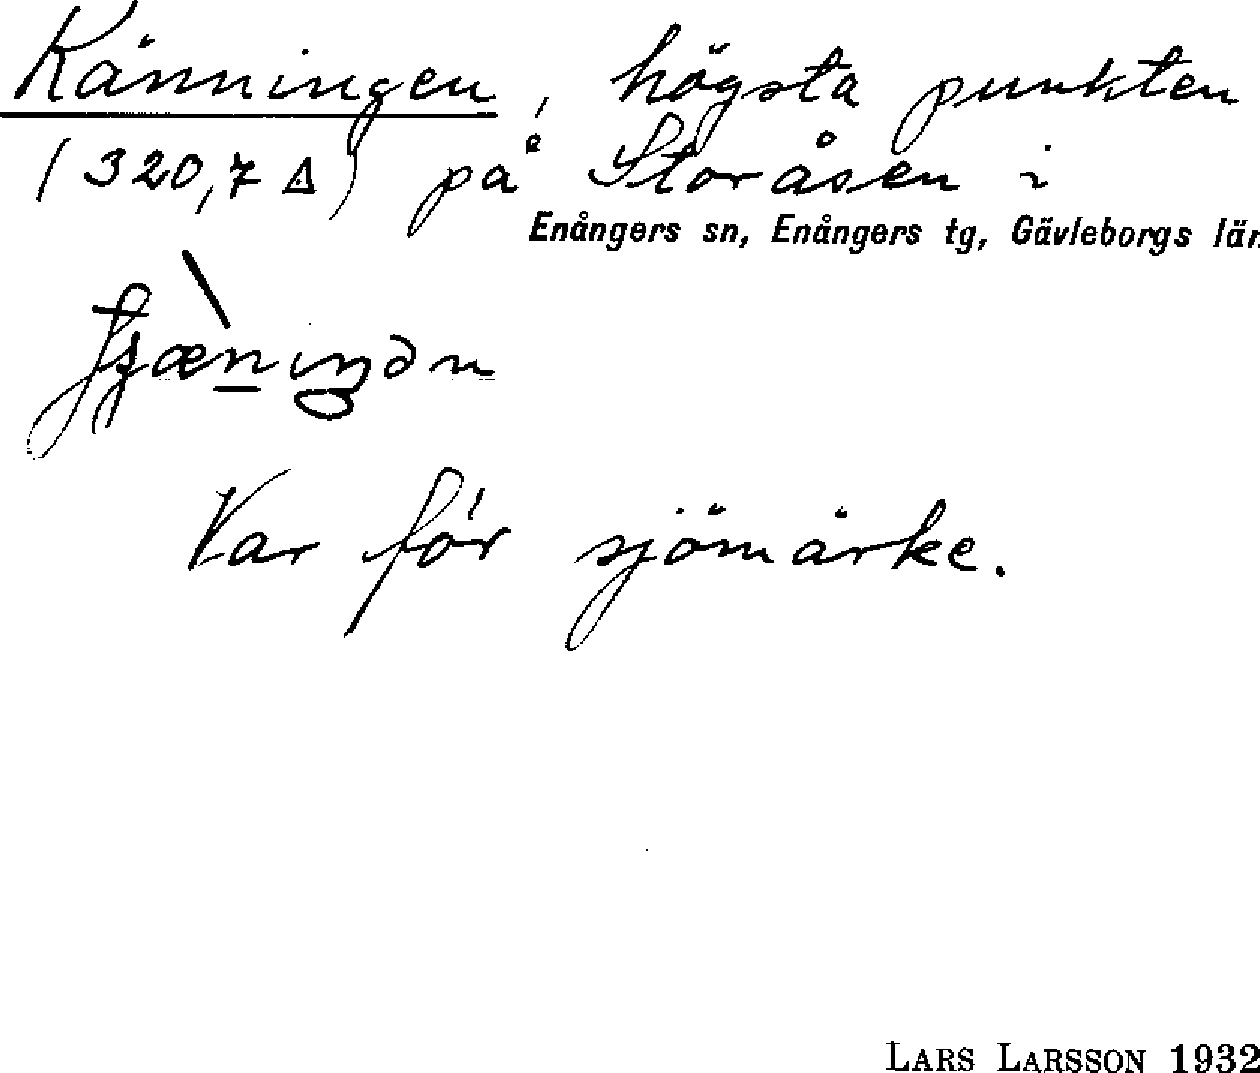 Känningen, högsta punkten
(320,7 Δ) på Storåsen i
Enångers sn, Enångers tg, Gävleborgs län
Var förr sjömärke.
LARS LARSSON 1932